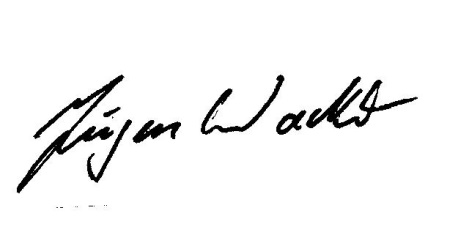 Jürgen Wackt